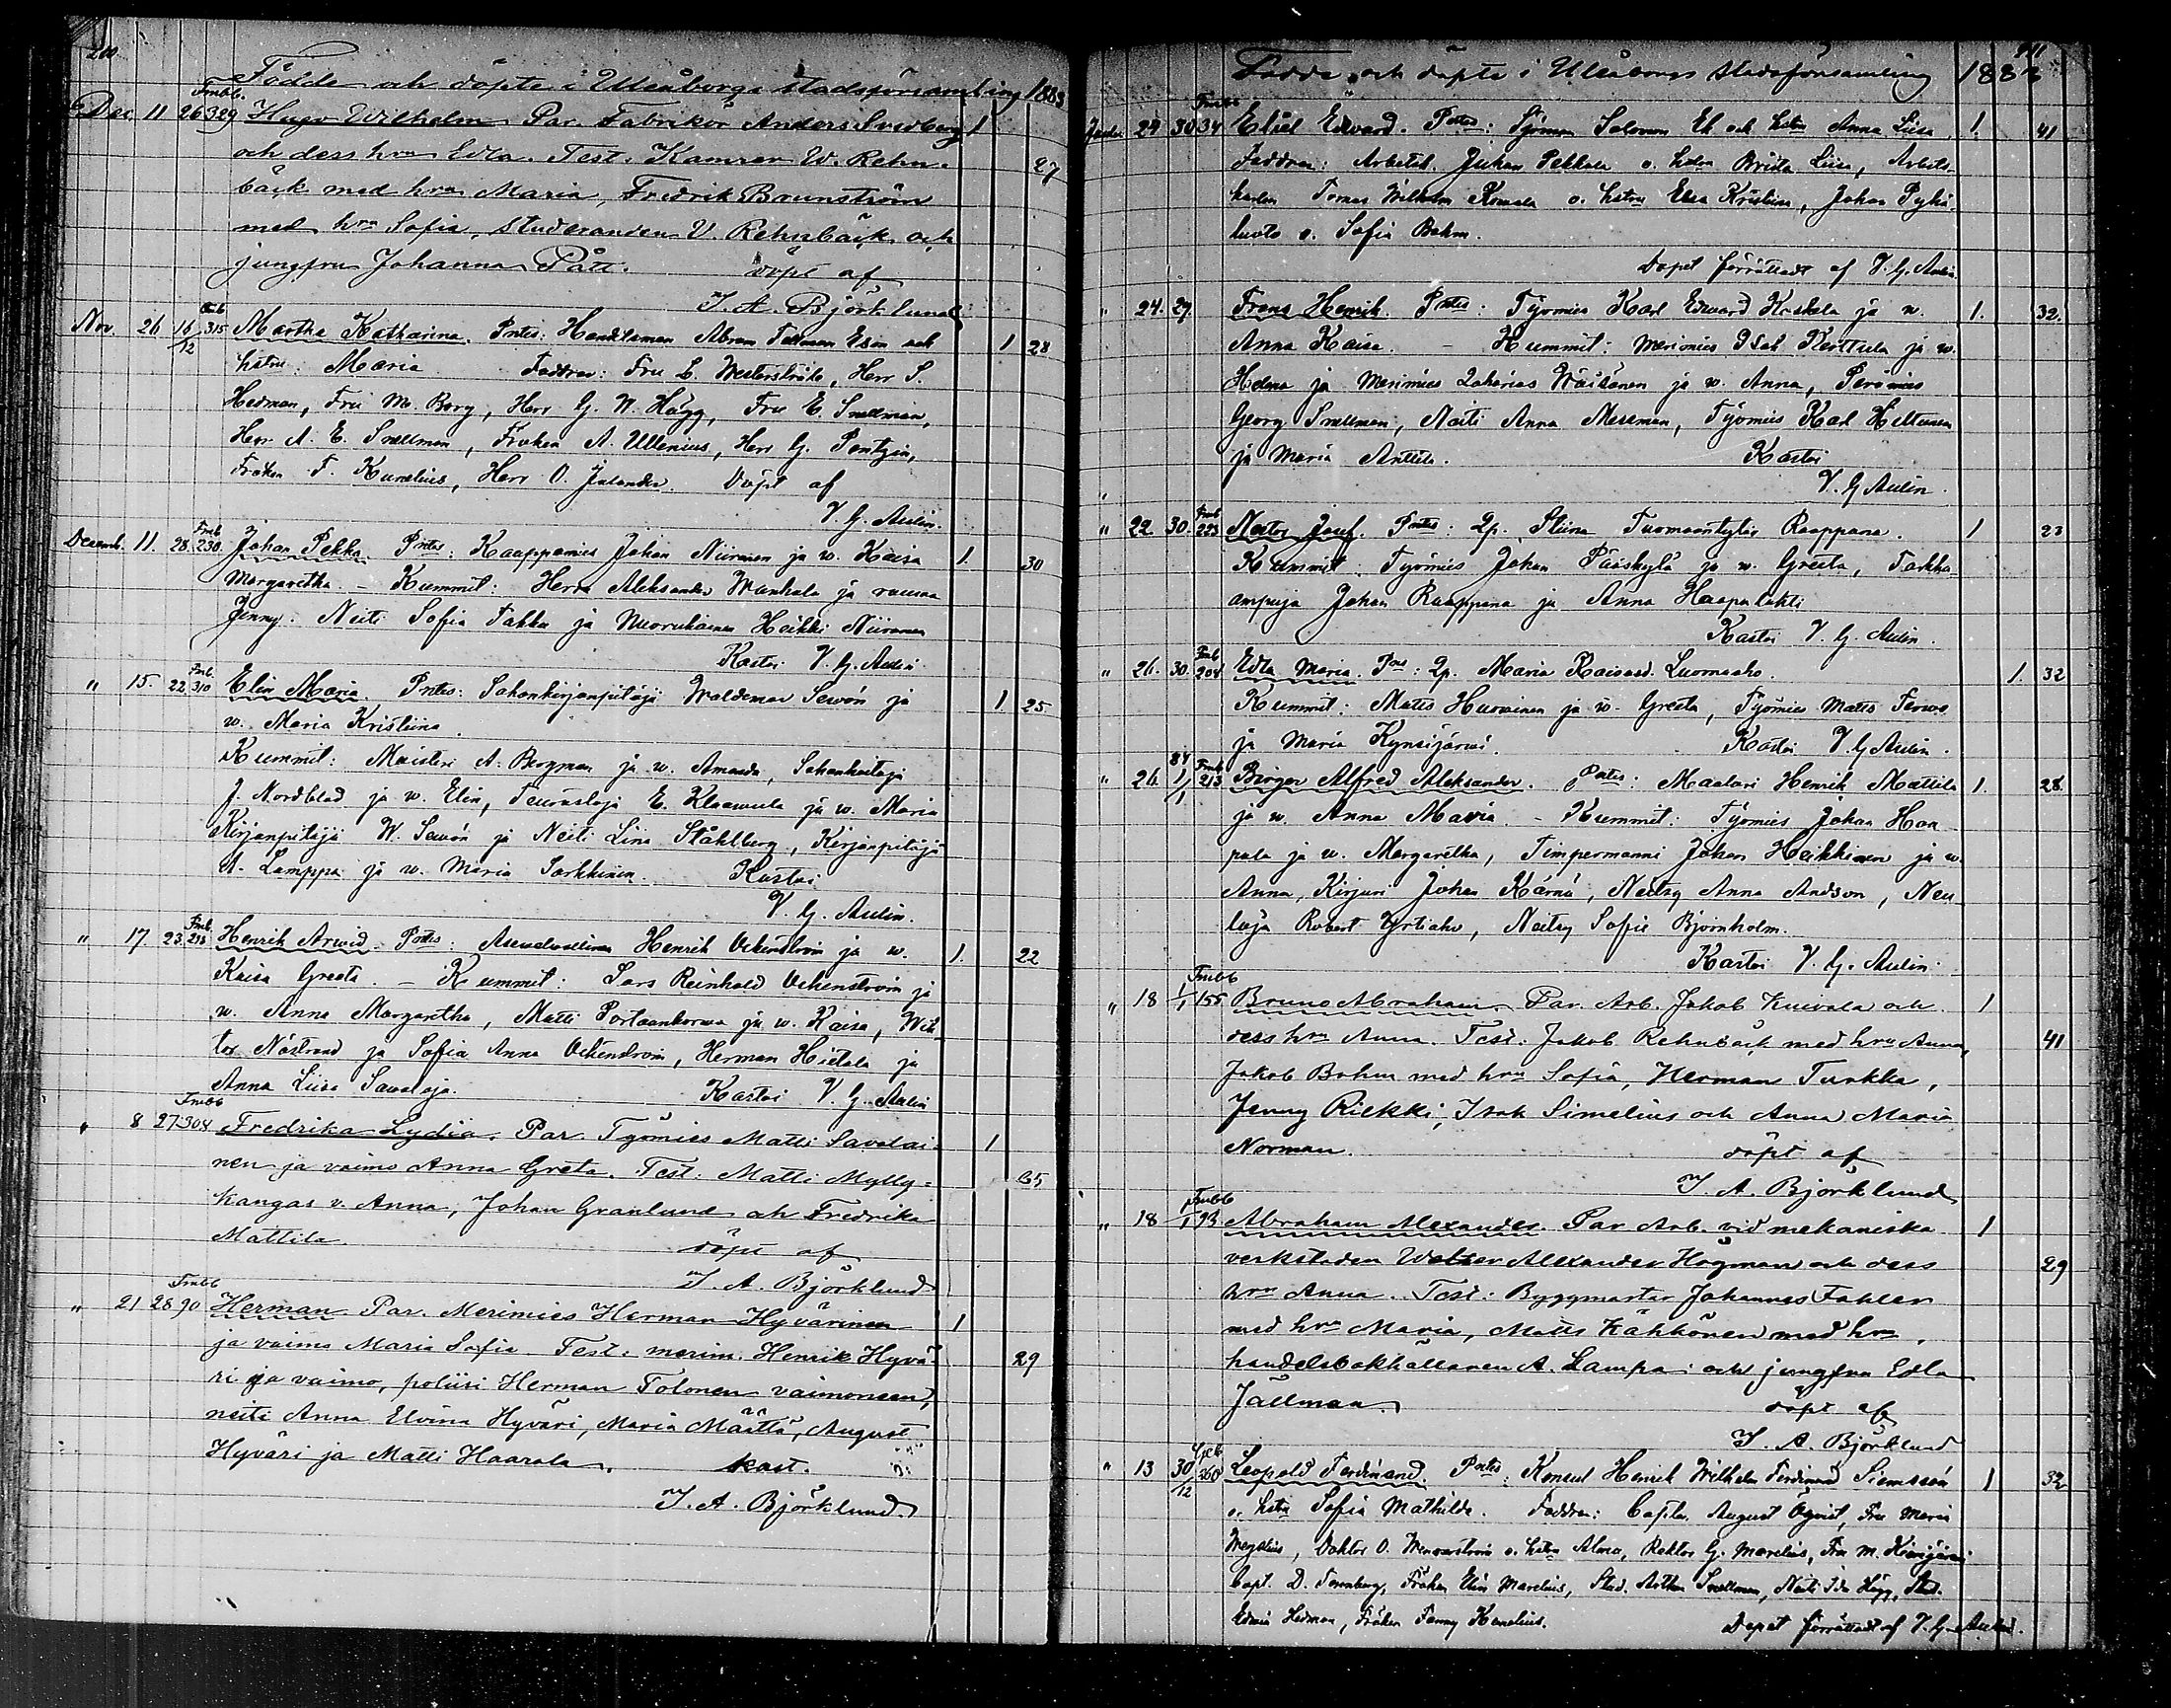 Födde och döpte i Uleåborgs stadsförsamling 1883
Dec. 11 26 Fmbb. 329 Hugo Wilhelm Par. Fabrikör Anders Svedberg 1
och dess hru Edla. Test. Kamrer W. Rehn- 27
bäck med hru Maria, Fredrik Brunström
med hru Sofia, Studeranden V. Rehnbäck och
jungfru Johanna Pått. döpt af
I. A. Björklund
Nov. 26 16/12 Fmb 315 Martha Katharina. Pntes: Handelsman Abram och 1 28
hstru Maria Faddrar: Fru L. Westerstråle, Herr S.
Hedman, Fru M. Borg, Herr G. W. Hägg, Fru E. Snellman,
Herr A. E. Snellman, Fröken A. Ullenius, Herr G. Pentzin,
Fröken F. Kurelius, Herr O. Jalander. Döpt af
V. G. Aulin.
Decemb. 11. 28. Fmb 230. Johan Pekka Pntes: Kaappamies Johan Niiranen ja w. Kaisa 1. 30
Margaretha. – Kummit: Herra Aleksander Wanhala ja rouwa
Jenny: Neiti Sofia Takku ja Nuorukainen Heikki Niiranen
Kastoi V. G. Aulin.
" 15. 22 Fmb. 310 Elin Maria. Pntes: Sahankirjanpitäjä Waldemar Sewón ja 1 25
w. Maria Kristiina
Kummit: Maisteri A. Bergman ja w. Amanda, Sahanhoitaja
J. Nordblad ja w. Elin, E. Kleemula ja w. Maria
Kirjanpitäjä W. Sewón ja Neiti Liina Ståhlberg, Kirjanpitäjä
A. Lamppa ja w. Maria Sarkkinen. Kastoi
V. G. Aulin.
" 17 23. Fmb. Henrik Arwid Pntes: Asewelwollinen Henrik Uhlenström ja w. 1. 22
Kaisa Greeta. – Kummit: Lars Reinhold Uhlenström ja
w. Anna Margaretha, Matti Portaankorwa ja w. Kaisa, Wik-
tor Nästrand ja Sofia Anna Uhlenström, Herman Hietala ja
Anna Liisa Sawoloja. Kastoi V. G. Aulin
" 8 27 Fmbb 308 Fredrika Lydia. Par. Työmies Matti Savolai- 1
nen ja vaimo Anna Greta. Test: Matti Mylly- 35
kangas v. Anna, Johan Granlund och Fredrika
Mattila döpt af
I. A. Björklund
" 21 28 Fmbb 90 Herman Par. Merimies Herman Hyvärinen 1
ja vaimo Maria Sofia. Test. merim. Henrik Hyvä- 29
ri ja vaimo, poliisi Herman Tolonen vaimoneen,
neiti Anna Elvina Hyväri, Maria Määttä, August
Hyväri ja Matti Haarala. kast.
I. A. Björklund.
Födde och döpte i Uleåborgs Stadsförsamling 1883
24 30 Fmbb 34 Eliel Edward. Pntes: Sjöman Salomon Ek och hstru Anna Liisa. 1. 41
Faddrar: Arbetsk. Juhan Pekkala o. hstru Brita Liisa, Arbets-
karlen Tomas Wilhelm Komula o. hstru Elsa Kristina, Johan Pyhä-
luoto o. Sofia Bohm.
Dopet förrättadt af V. G. Aulin.
" 24. 27. Frans Henrik. Pntes: Työmies Karl Edward Koskela ja w. 1. 32.
Anna Kaisa. – Kummit: Merimies Isak Kerttula ja w.
Helena ja Merimies Zakarias Wäisänen ja w. Anna, Perämies
Georg Snellman, Neiti Anna Meseman, Työmies Karl Hiltunen
ja Maria Anttila. Kastoi
" V. G. Aulin.
" 22. 30. Fmb 223 Nestor Josef. Pntes: Ip. Stiina Tuomaantytär Raappana. 1 23
Kummit: Työmies Johan Pääskylä ja w. Greeta, Tarkka-
ampuja Johan Raappana ja Anna Haapalahti
Kastoi V. G. Aulin.
" 26. 30. Fmb 208 Edla Maria. Pns: Ip. Maria Kaisa d. Luomaaho. 1. 32
Kummit: Matts Huowinen ja w. Greeta, Työmies Matts Terwo
ja Maria Kynsijärwi. Kastoi V. G. Aulin.
" 26. 84 1/1 Fmb 213 Birger Alfred Aleksander. Pntes: Maalari Henrik Mattila 1. 28.
ja w. Anna Maria. – Kummit: Työmies Johan Haa-
pala ja w. Margaretha, Timpermanni Johan Heikkinen ja w.
Anna, Kirjuri Johan Kärnä, Neitsy Anna Andson, Neu-
loja Robert Yrtiaho, Neitsy Sofie Björnholm.
Kastoi V. G. Aulin.
" 18 1/1 Fmbb 155 Bruno Abraham. Par. Arb. Jakob Kuivala och 1
dess hru Anna. Test. Jakob Rehnbäck med hru Anna, 41
Jakob Bohm med hru Sofia, Herman Turkka,
Jenny Riekki, Isak Simelius och Anna Maria
Norman. döpt af
I. A. Björklund
" 18 1/1 Fmbb 93 Abraham Alexander. Par Arb. vid mekaniska 1
verkstaden Walter Alexander Högman och dess 29
hru Anna. Test: Byggmästar Johannes Fahler
med hru Maria, Matts Kähkönen med hru,
handelsbokhållaren A. Lampa och jungfru Edla
Jällman. döpt af
I. A. Björklund
" 13 30/12 360 Leopold Ferdinand. Pntes: Konsul Henrik Wilhelm Ferdinand Siemssen 1 32
o. hstru Sofia Mathilda. Faddrar: Capten August Öqvist, Fru Maria
Weydius, Doktor O. Wennerström o. hstru Alma, Rektor G. Marelius, Fru M.
Capt. D. Tornberg, Fröken Elin Marelius, Stud. Arthur Snellman, Neiti Ida Hägg, Stud.
Edwin Hedman, Fröken Fanny Kurelius. Dopet förrättadt af V. G. Aulin.